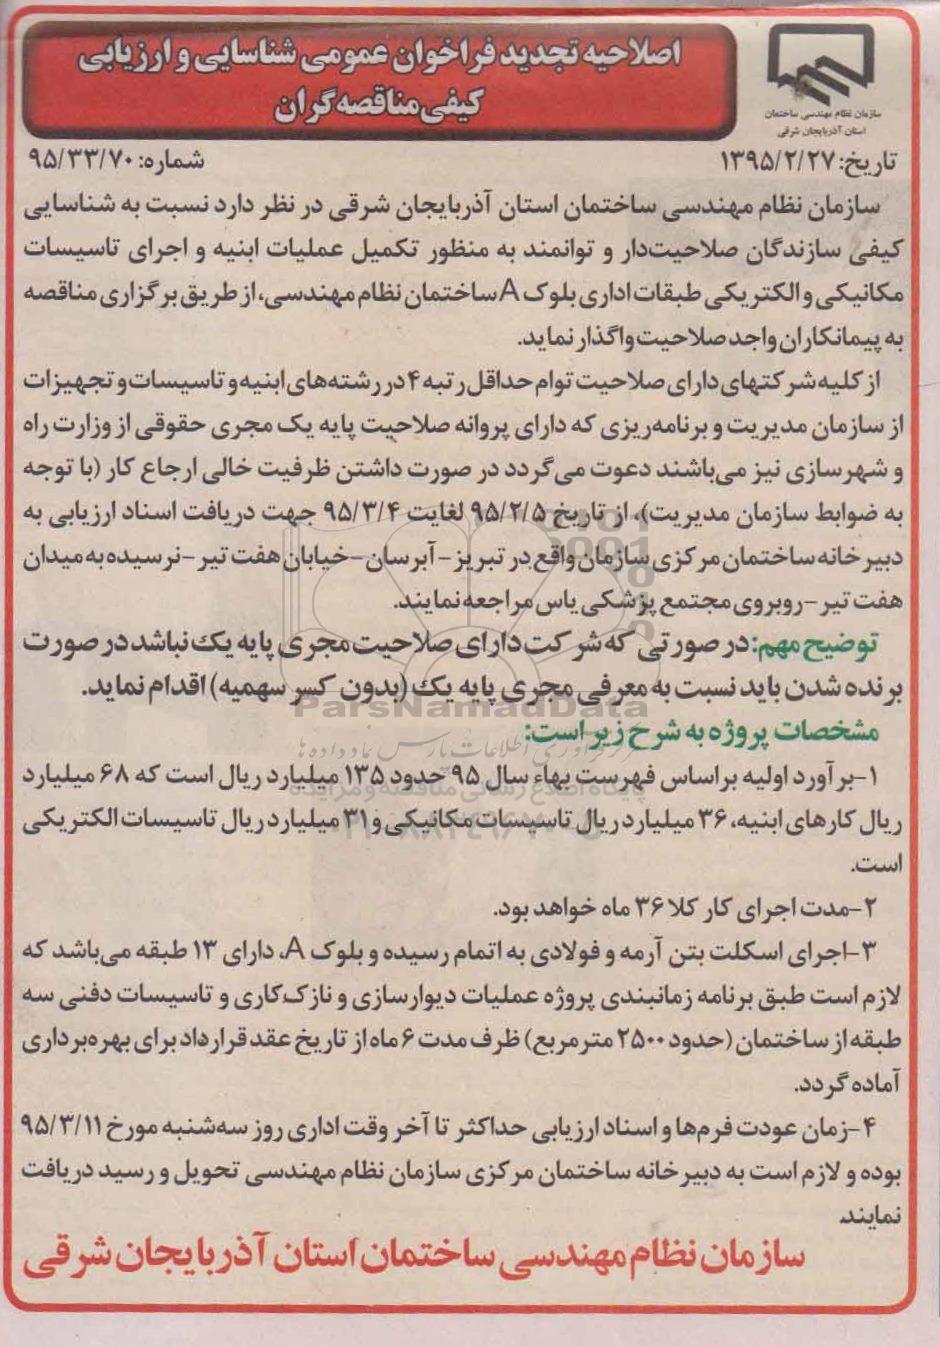 اصلاحیه تجدید فراخوان عمومی شناسایی و ارزیابی
کیفی مناقصه گران
سازمان نظام مهندسی ساختمان
استان آذربایجان شرقی
تاریخ: ۱۳۹۵/۲/۲۷
شماره: ۹۵/۳۳/۷۰
سازمان نظام مهندسی ساختمان استان آذربایجان شرقی در نظر دارد نسبت به شناسایی
کیفی سازندگان صلاحیت‌دار و توانمند به منظور تکمیل عملیات ابنیه و اجرای تاسیسات
مکانیکی و الکتریکی طبقات اداری بلوک A ساختمان نظام مهندسی، از طریق برگزاری مناقصه
به پیمانکاران واجد صلاحیت واگذار نماید.
از کلیه شرکتهای دارای صلاحیت توام حداقل رتبه ۴ در رشته‌های ابنیه و تاسیسات و تجهیزات
از سازمان مدیریت و برنامه‌ریزی که دارای پروانه صلاحیت پایه یک مجری حقوقی از وزارت راه
و شهرسازی نیز می‌باشند دعوت می‌گردد در صورت داشتن ظرفیت خالی ارجاع کار (با توجه
به ضوابط سازمان مدیریت)، از تاریخ ۹۵/۲/۵ لغایت ۹۵/۳/۴ جهت دریافت اسناد ارزیابی به
دبیرخانه ساختمان مرکزی سازمان واقع در تبریز - آبرسان - خیابان هفت تیر - نرسیده به میدان
هفت تیر - روبروی مجتمع پزشکی یاس مراجعه نمایند.
توضیح مهم: در صورتی که شرکت دارای صلاحیت مجری پایه یک نباشد در صورت
برنده شدن باید نسبت به معرفی مجری پایه یک (بدون کسر سهمیه) اقدام نماید.
ParsNamadData
مشخصات پروژه به شرح زیر است:
۱-برآورد اولیه براساس فهرست بهاء سال ۹۵ حدود ۱۳۵ میلیارد ریال است که ۶۸ میلیارد
پایگاه اطلاع رسانی مناقصه و مزایده
ریال کارهای ابنیه، ۳۶ میلیارد ریال تاسیسات مکانیکی و ۳۱ میلیارد ریال تاسیسات الکتریکی
است.
۲-مدت اجرای کار کلا ۳۶ ماه خواهد بود.
۳-اجرای اسکلت بتن آرمه و فولادی به اتمام رسیده و بلوک A، دارای ۱۳ طبقه می‌باشد که
لازم است طبق برنامه زمانبندی پروژه عملیات دیوارسازی و نازک‌کاری و تاسیسات دفنی سه
طبقه از ساختمان (حدود ۲۵۰۰ مترمربع) ظرف مدت ۶ ماه از تاریخ عقد قرارداد برای بهره‌برداری
آماده گردد.
۴-زمان عودت فرم‌ها و اسناد ارزیابی حداکثر تا آخر وقت اداری روز سه‌شنبه مورخ ۹۵/۳/۱۱
بوده و لازم است به دبیرخانه ساختمان مرکزی سازمان نظام مهندسی تحویل و رسید دریافت
نمایند.
سازمان نظام مهندسی ساختمان استان آذربایجان شرقی